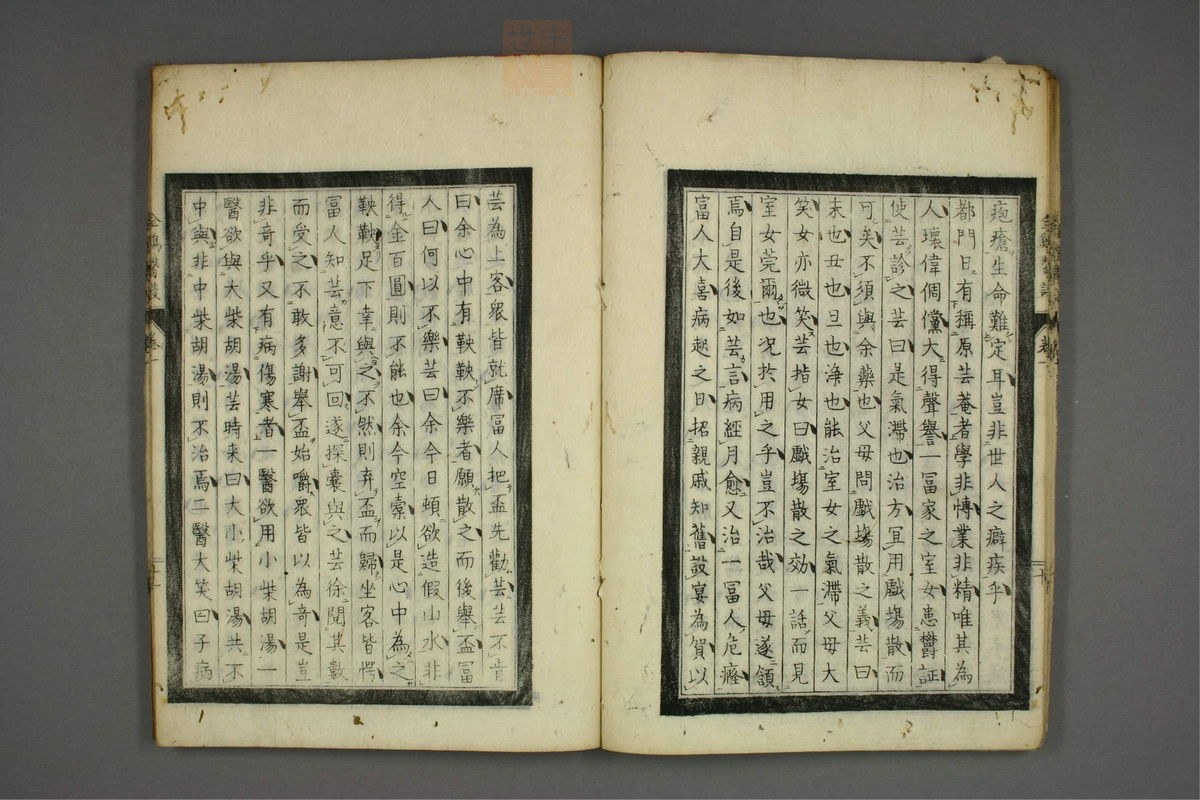 疱瘡生命難定耳豈非世人之癖疾乎
都門日有稱原芸菴者學非博業非精唯其為
人壞偉倜儻大得聲譽一冨家之室女患欝証
使芸診之芸曰是氣滯也治方冝用戲塲散而
可矣不須與余藥也父母問戲塲散之義芸曰
末也丑也旦也淨也能治室女之氣滯父母大
笑女亦微笑芸指女曰戲塲散之効一話而見
室女莞爾也况於用之乎豈不治哉父母遂領
焉自是後如芸言病經月愈又治一冨人危癥
富人大喜病起之日招親戚知舊設宴為賀以
芸為上客衆皆就席冨人把盃先勸芸芸不肯
曰余心中有鞅鞅不樂者願散之而後舉盃冨
人曰何以不樂芸曰余今日頻欲造假山水非
得金百圓則不能也余今空槖以是心中為之
鞅鞅足下幸與之不然則弃盃而歸坐客皆愕
冨人知芸意不可回遂探囊與之芸徐閲其數
而受之不敢多謝舉盃始嚼衆皆以為奇是豈
非奇乎又有病傷寒者一醫欲用小柴胡湯一
醫欲與大柴胡湯芸時来曰大小柴胡湯共不
中與非中柴胡湯則不治焉二醫大笑曰子病